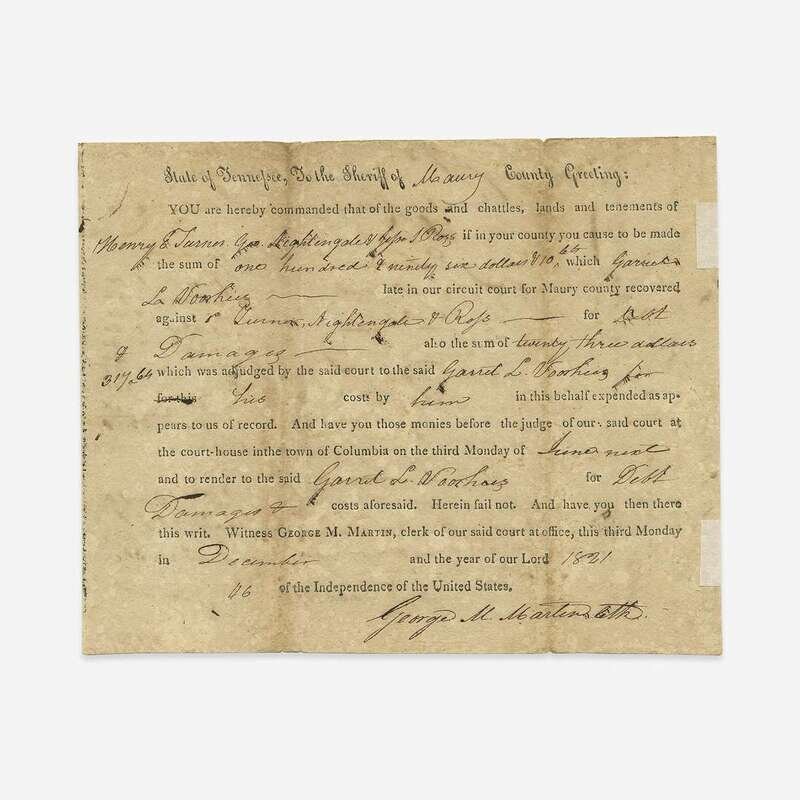 State of Tennessee, To the Sheriff of Maury County Greeting:
YOU are hereby commanded that of the goods and chattles, lands and tenements of
Henry E Turner. Geo. Nightengale & Ross if in your county you cause to be made
the sum of one hundred & ninety six dollars & 10 cts which Garret
L. Voorhies late in our circuit court for Maury county recovered
against sd Turner, Nightengale & Ross for Debt
& Damages also the sum of twenty three dollars
31 7/2 64 which was adjudged by the said court to the said Garret L. Voorhies for
for his his costs by him in this behalf expended as ap-
pears to us of record. And have you those monies before the judge of our said court at
the court-house in the town of Columbia on the third Monday of June next
and to render to the said Garret L. Voorhies for Debt
Damages & costs aforesaid. Herein fail not. And have you then there
this writ. Witness GEORGE M. MARTIN, clerk of our said court at office, this third Monday
in December and the year of our Lord 1821
46 of the Independence of the United States.
George M Martin Clk.